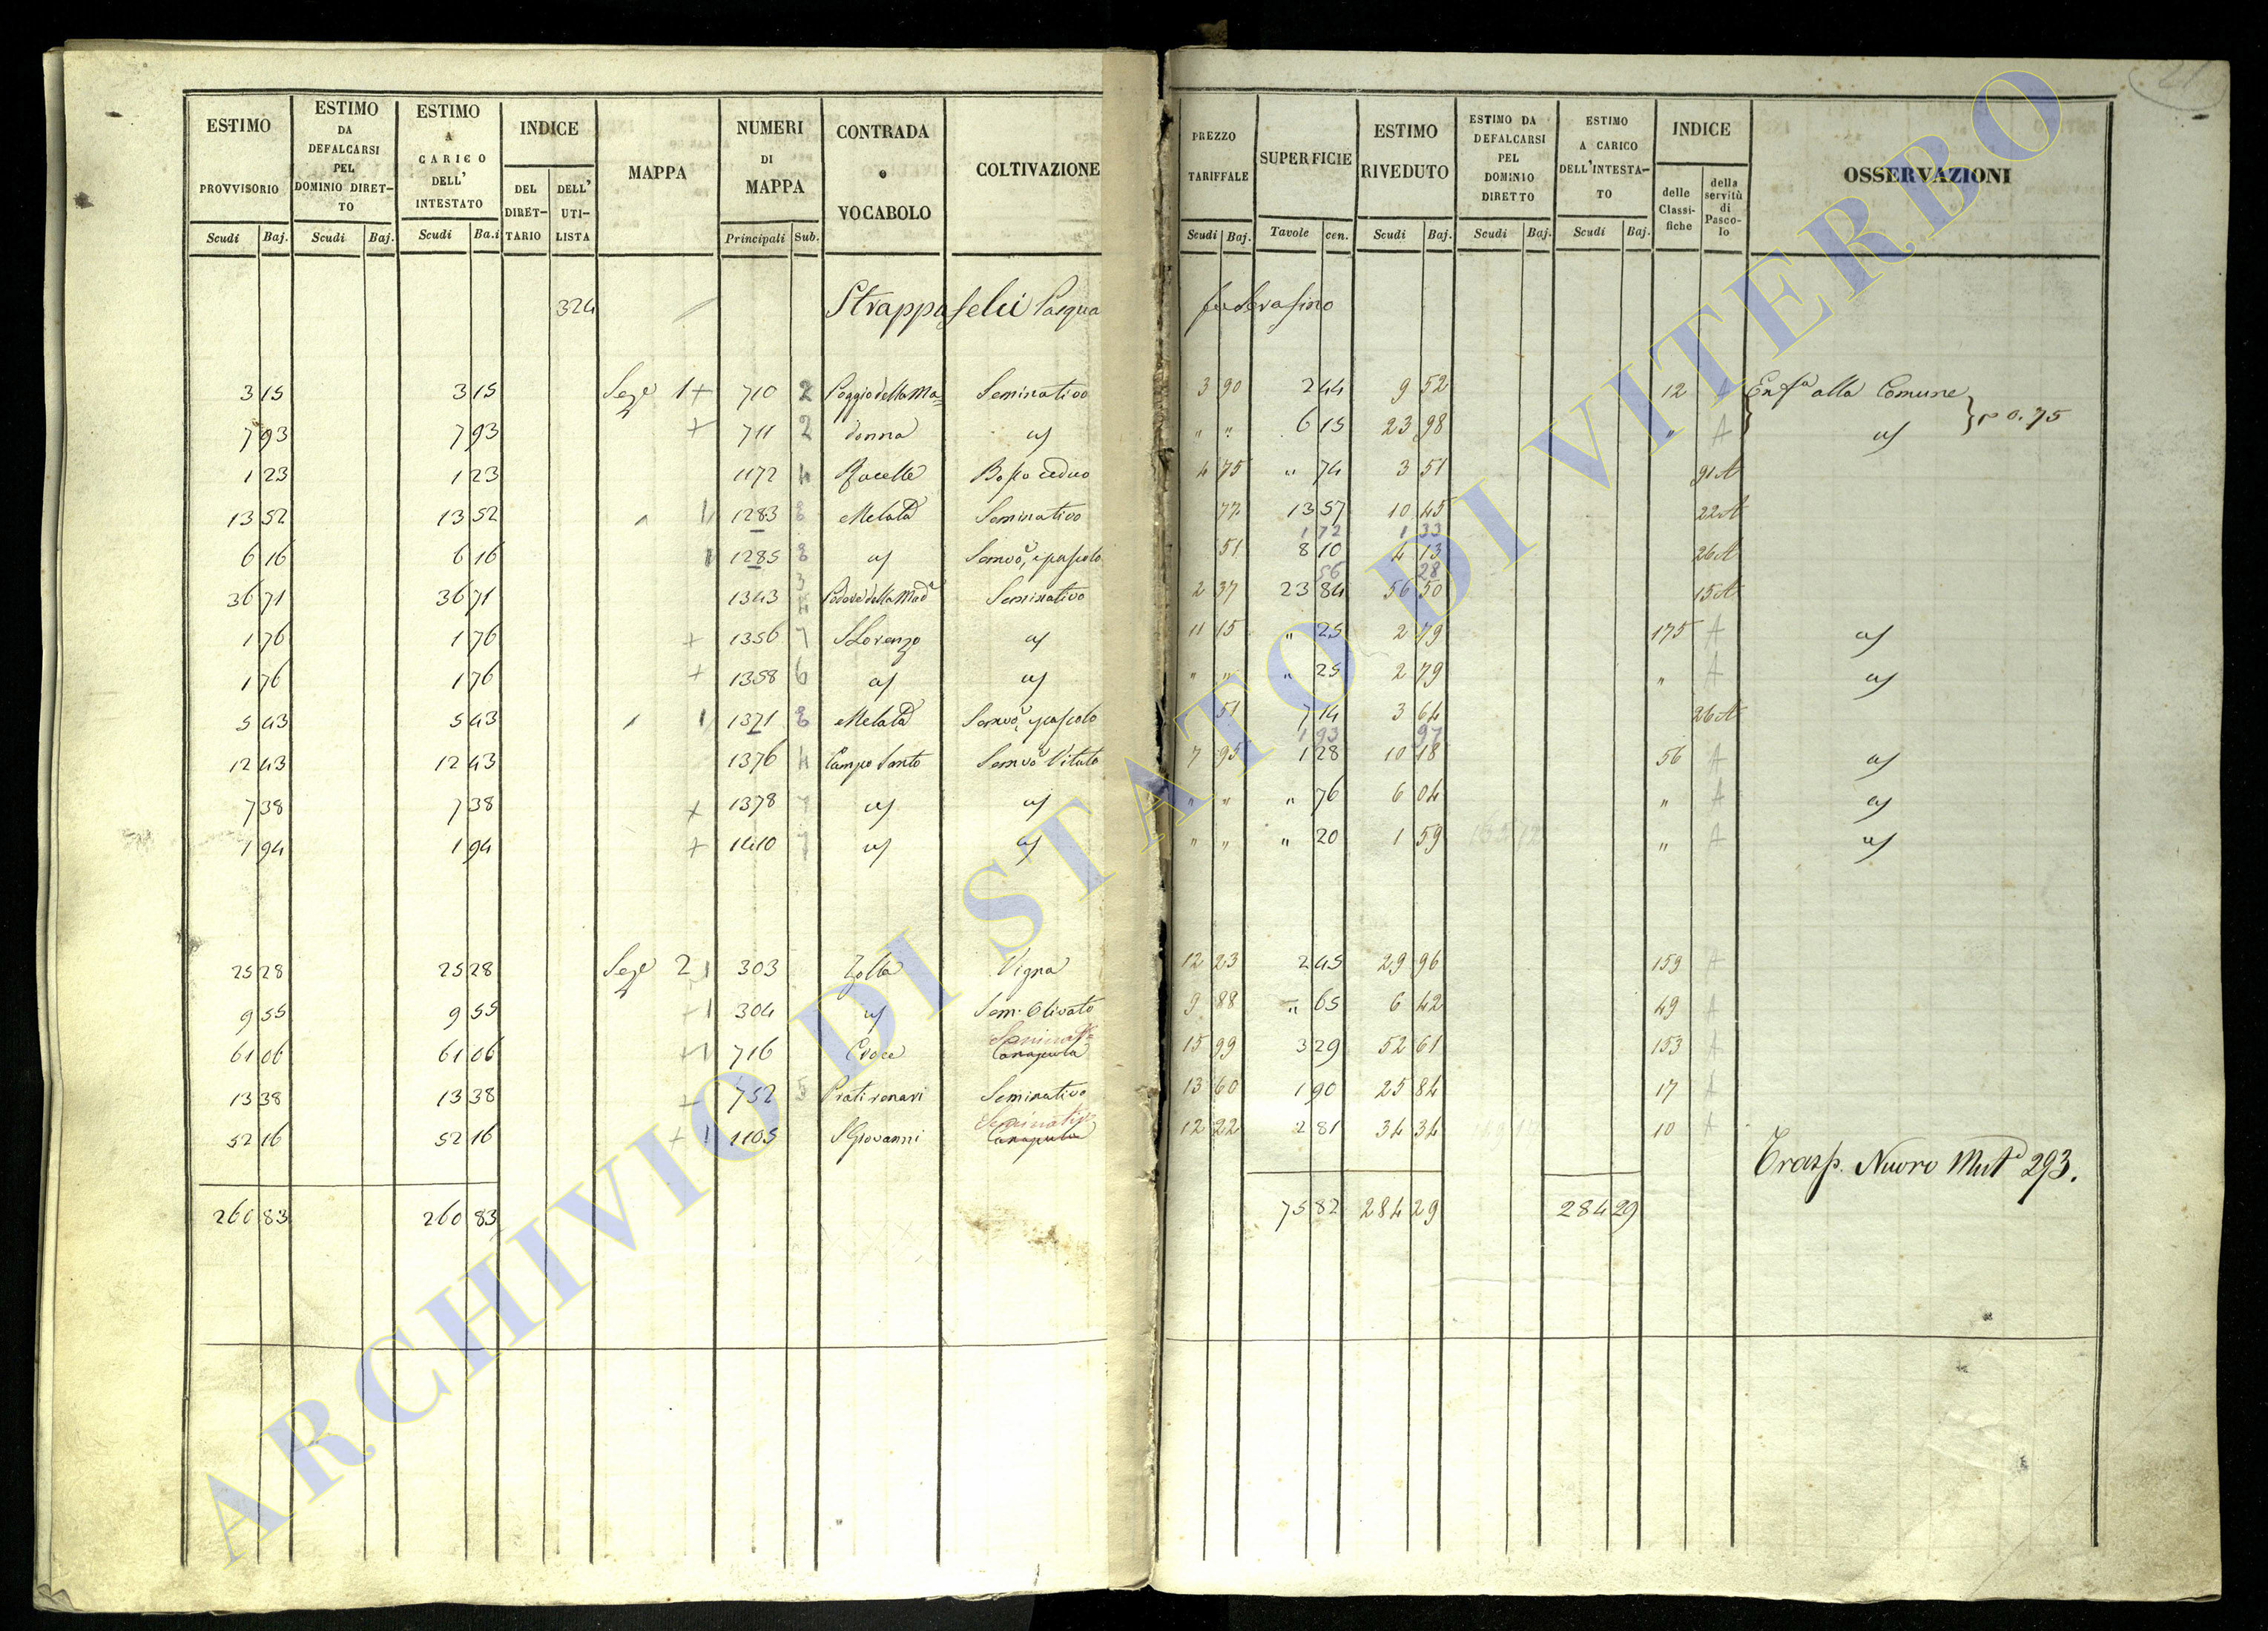 ESTIMO PROVVISORIO | ESTIMO DA DEFALCARSI PEL DOMINIO DIRETTO | ESTIMO A CARICO DELL' INTESTATO | INDICE DEL DIRETTARIO | DELL' UTILISTA | MAPPA | NUMERI DI MAPPA | CONTRADA o VOCABOLO | COLTIVAZIONE | PREZZO TARIFFALE | SUPERFICIE | ESTIMO RIVEDUTO | ESTIMO DA DEFALCARSI PEL DOMINIO DIRETTO | ESTIMO A CARICO DELL'INTESTATO | INDICE delle Classifiche | della servitù di Pascolo | OSSERVAZIONI
Scudi Baj. | Scudi Baj. | Scudi Ba.i | Principali Sub. | Scudi Baj. | Tavole cen. | Scudi Baj. | Scudi Baj. | Scudi Baj.
21
324 Strappafelci Pasqua fu Serafino
3 15 | 3 15 | Seze 1 + | 710 2 | Poggio della Ma= | Seminativo | 3 90 | 2 44 | 9 52 | 12 A | Enfa alla Comune } p 0.75
7 93 | 7 93 | + | 711 2 | donna | as | " " | 6 15 | 23 98 | " A | as
1 23 | 1 23 | 1172 4 | Rocelle | Bosco ceduo | 4 75 | " 74 | 3 51 | 91 A
13 52 | 13 52 | 1283 8 | Melata | Seminativo | 77 | 13 57 | 10 45 | 22 A
1 72 | 1 33
6 16 | 6 16 | 1285 8 | as | Semvo, e pascolo | 51 | 8 10 | 4 13 | 26 A
56 | 28
36 71 | 36 71 | 1343 3 4 | Podere della Mada | Seminativo | 2 37 | 23 84 | 56 50 | 15 A
1 76 | 1 76 | + | 1356 7 | S Lorenzo | as | 11 15 | " 25 | 2 79 | 175 A | as
1 76 | 1 76 | + | 1358 6 | as | as | " " | " 25 | 2 79 | " A | as
5 43 | 5 43 | 1371 8 | Melata | Semvo, e pascolo | 51 | 7 14 | 3 64 | 26 A
1 93 | 97
12 43 | 12 43 | 1376 4 | Campo Santo | Semvo Vitato | 7 95 | 1 28 | 10 18 | 56 A | as
7 38 | 7 38 | + | 1378 7 | as | as | " " | " 76 | 6 04 | " A | as
1 94 | 1 94 | + | 1410 7 | as | as | " " | " 20 | 1 59 | " A | as
25 28 | 25 28 | Seze 2 | 303 | Zolla | Vigna | 12 23 | 2 45 | 29 96 | 159 A
9 55 | 9 55 | + | 304 | as | Sem. Olivato | 9 88 | " 65 | 6 42 | 49 A
Seminato
61 06 | 61 06 | + | 716 | Croce | Canapula | 15 99 | 3 29 | 52 61 | 153 A
13 38 | 13 38 | + | 752 5 | Prati renari | Seminativo | 13 60 | 1 90 | 25 84 | 17 A
Seminativo
52 16 | 52 16 | + | 1105 | S Giovanni | Canapula | 12 22 | 2 81 | 34 34 | 10 A
Trasp. Nuovo Muta 293.
260 83 | 260 83 | 75 82 | 284 29 | 284 29
ARCHIVIO DI STATO DI VITERBO